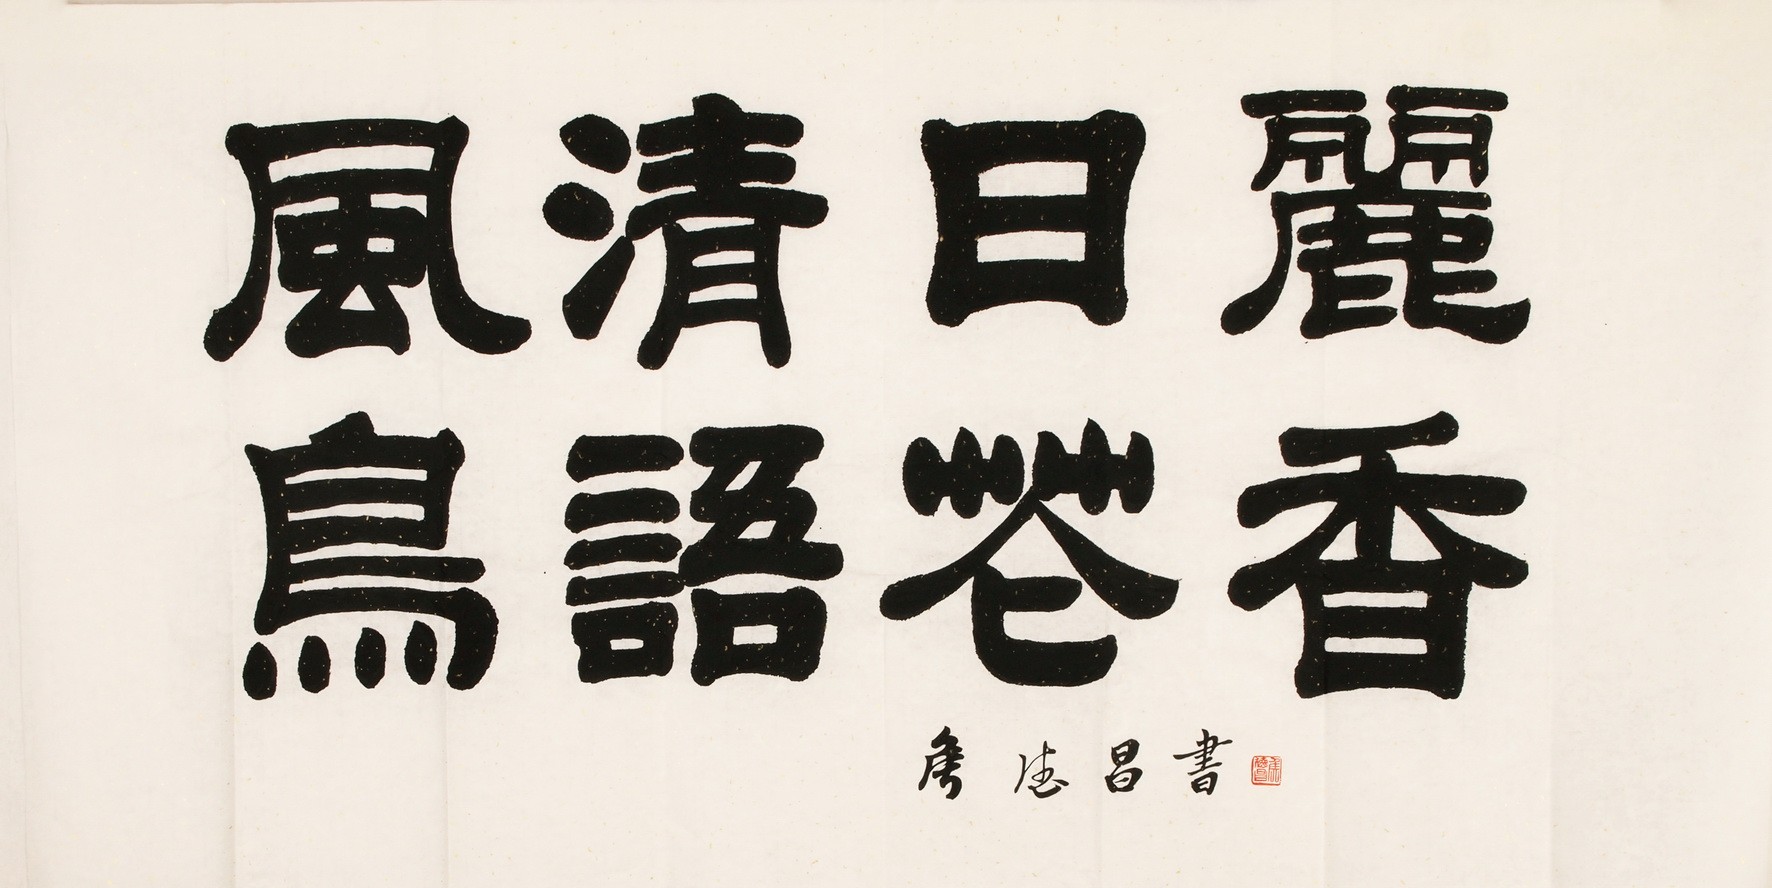 風清日麗
鳥語花香
德昌書